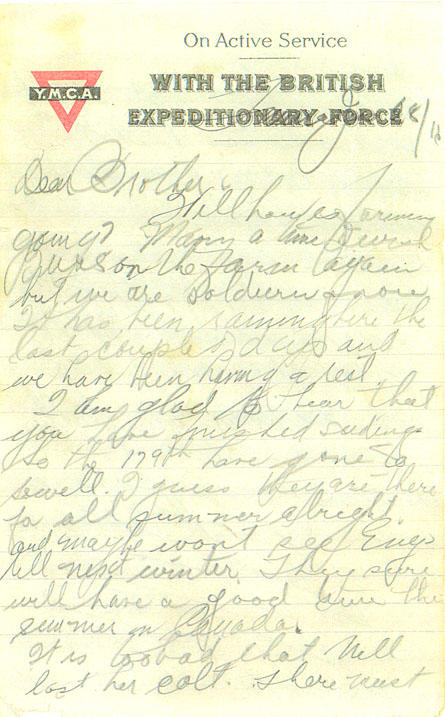 On Active Service
Y.M.C.A.
WITH THE BRITISH
EXPEDITIONARY FORCE
/16
Dear Brother
Well how es farming
going? Many a time I wish
I was on the farm again
but we are soldiern once
It has been raining here the
last couple of days and
we have been having a rest.
I am glad to hear that
you have finished seeding
So the 179th have gone to
Sewell. I guess they are there
for all summer alright.
and maybe won't see Eng.
till next winter. They sure
will have a good time the
summer in Canada.
It is too bad that Nell
lost her colt. There must